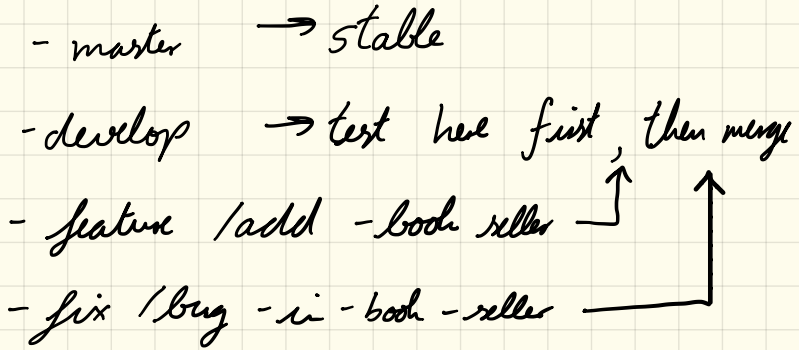 - master → stable
- develop → test here first, then merge
- feature /add -book seller
- fix /bug -in -book -seller